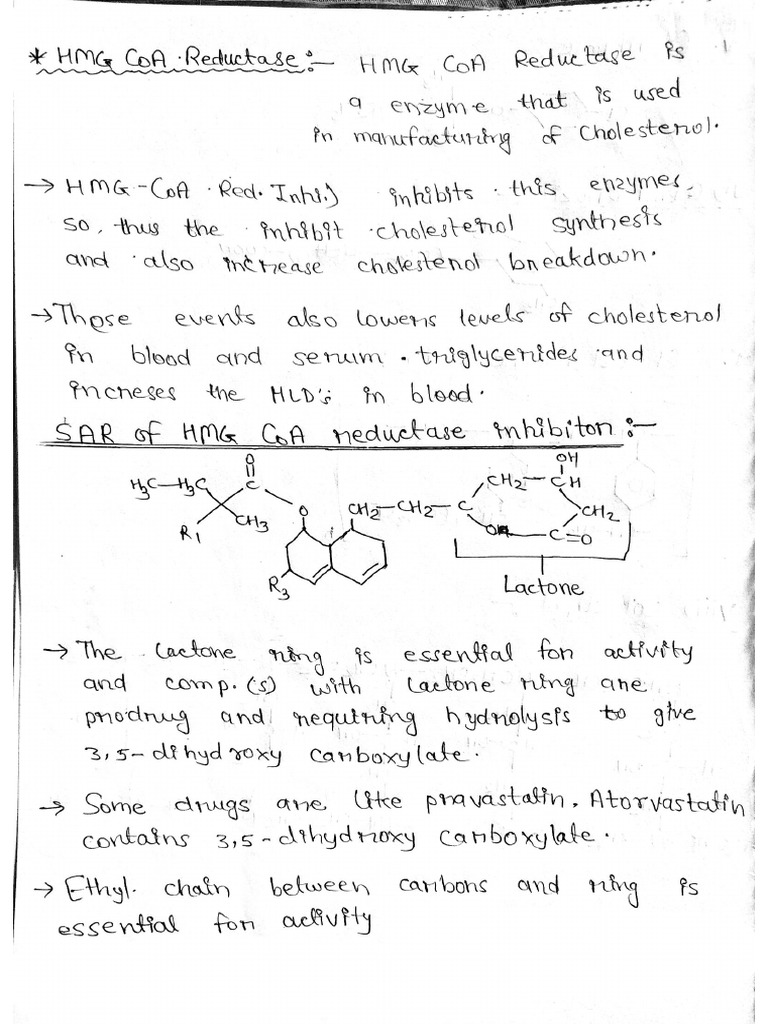 * HMG CoA Reductase:- HMG CoA Reductase is
a enzyme that is used
in manufacturing of Cholesterol.
→ HMG-CoA Red. Inhi.) inhibits this enzymes,
so, thus the inhibit cholesterol synthesis
and also increase cholesterol breakdown.
→ Those events also lowers levels of cholesterol
in blood and serum. triglycerides and
increses the HLD's in blood.
SAR of HMG CoA reductase inhibitor :-
H3C-H3C
O
C
O
CH3
R1
R3
CH2-CH2-C
CH2-CH
OH
CH2
C=O
O
Lactone
→ The Lactone ring is essential for activity
and comp.(s) with Lactone ring are
prodrug and requiring hydrolysis to give
3,5-dihydroxy carboxylate.
→ Some drugs are like pravastatin, Atorvastatin
contains 3,5-dihydroxy carboxylate.
→ Ethyl. chain between carbons and ring is
essential for activity